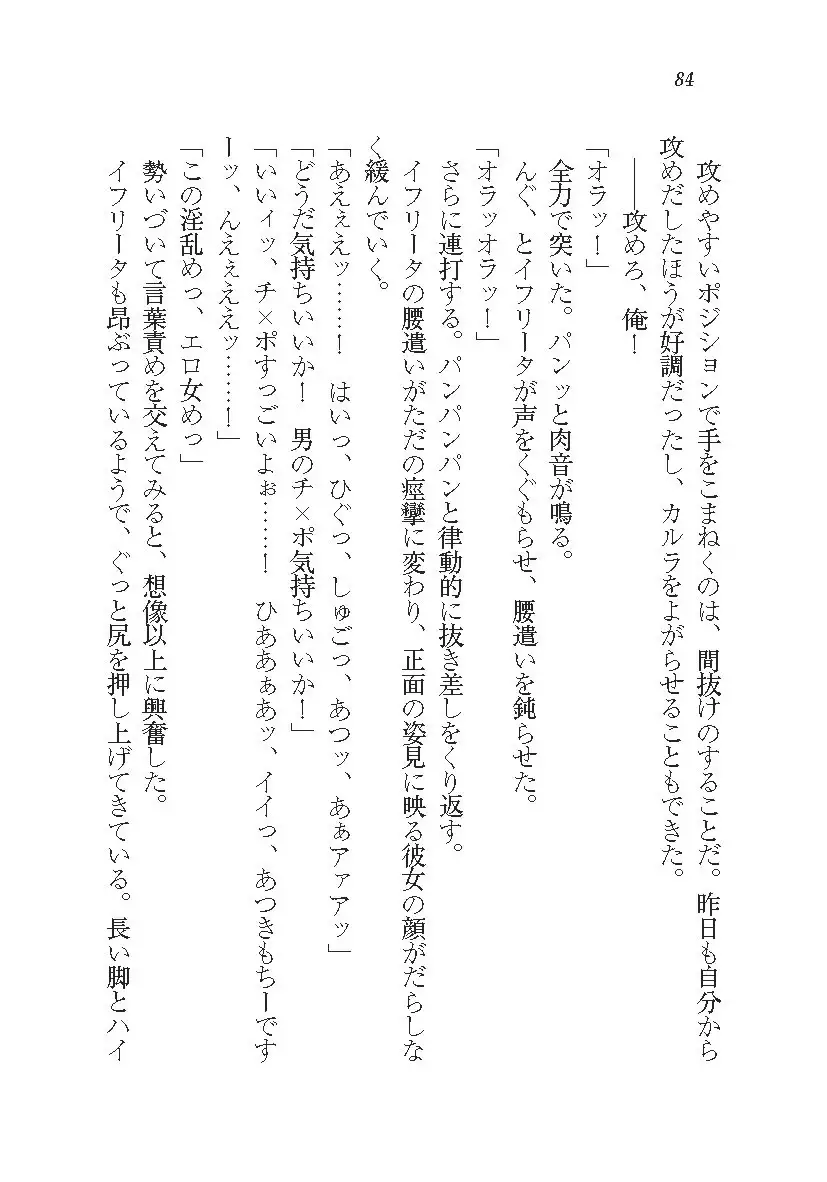 84
　攻めやすいポジションで手をこまねくのは、間抜けのすることだ。昨日も自分から
攻めだしたほうが好調だったし、カルラをよがらせることもできた。
　――攻めろ、俺！
「オラッ！」
　全力で突いた。パンッと肉音が鳴る。
　んぐ、とイフリータが声をくぐもらせ、腰遣いを鈍らせた。
「オラッオラッ！」
　さらに連打する。パンパンパンと律動的に抜き差しをくり返す。
　イフリータの腰遣いがただの痙攣に変わり、正面の姿見に映る彼女の顔がだらしな
く緩んでいく。
「あえぇえッ……！　はいっ、ひぐっ、しゅごっ、あつッ、あぁアァアッ」
「どうだ気持ちいいか！　男のチ×ポ気持ちいいか！」
「いいィッ、チ×ポすっごいよぉ……！　ひああぁあッ、イイっ、あつきもちーです
ーッ、んえぇええッ……！」
「この淫乱めっ、エロ女めっ」
　勢いづいて言葉責めを交えてみると、想像以上に興奮した。
　イフリータも昂ぶっているようで、ぐっと尻を押し上げてきている。長い脚とハイ